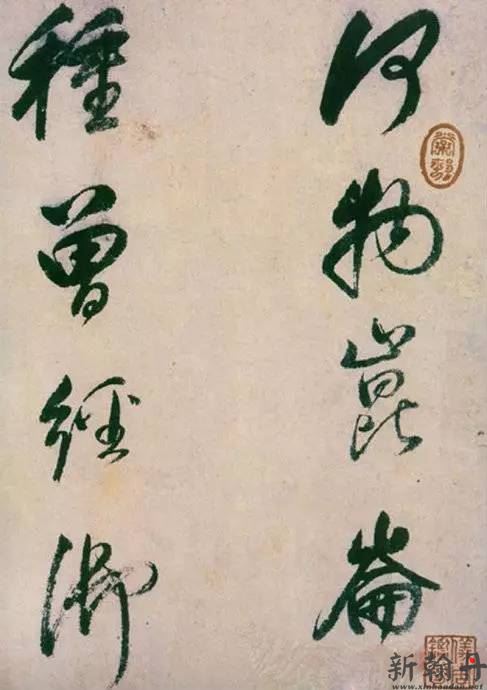 何物崑崙
種曾經御
新翰丹
www.xinhandan.net